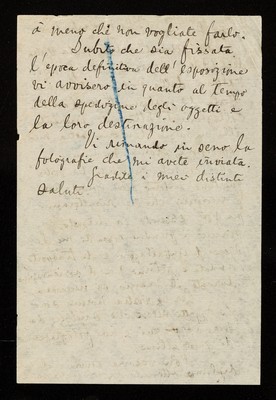 a meno chè non vogliate farlo.
Subito che sia fissata
l'epoca definitiva dell'esposizione
vi avviserò in quanto al tempo
della spedizione degli oggetti e
la loro destinazione.
Vi rimando in seno la
fotografia che mi avete inviata.
Gradite i miei distinti
saluti